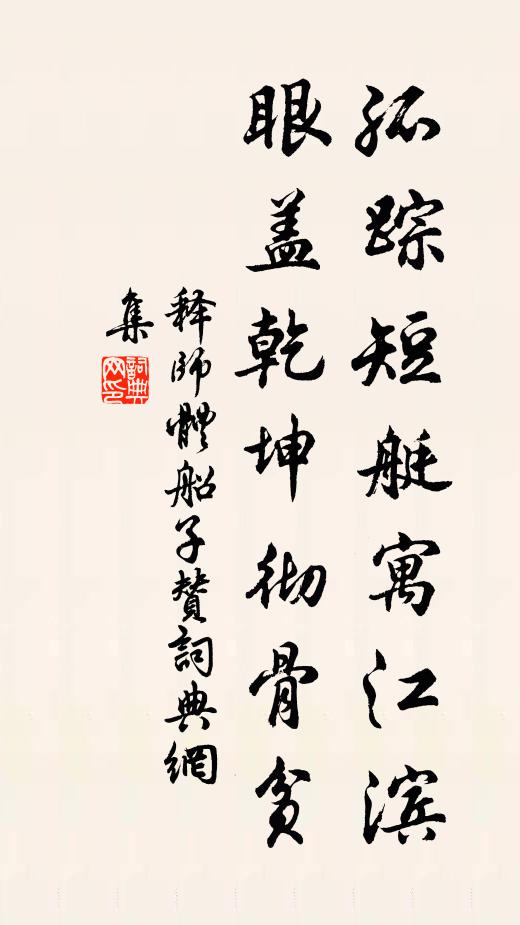 孤踪短艇寓江滨
眼盖乾坤彻骨贫
释师體船子赞詞典網
集
詞典
网印